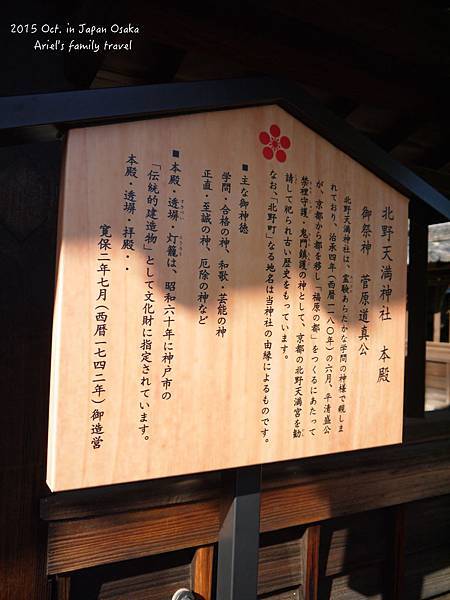 2015 Oct. in Japan Osaka
Ariel's family travel
北野天満神社 本殿
御祭神 菅原道真公
北野天満神社は、霊験あらたかな学問の神様で親しま
れており、治承四年(西暦一一八〇年)の六月、平清盛公
が、京都から都を移し「福原の都」をつくるにあたって
禁裡守護・鬼門鎮護の神として、京都の北野天満宮を勧
請して祀られ古い歴史をもっています。
なお、「北野町」なる地名は当神社の由縁によるものです。
■主な御神徳
学問・合格の神、和歌・芸能の神
正直・至誠の神、厄除の神など
■本殿・透塀・灯籠は、昭和六十年に神戸市の
「伝統的建造物」として文化財に指定されています。
本殿・透塀・拝殿・・
寛保二年七月(西暦一七四二年)御造営